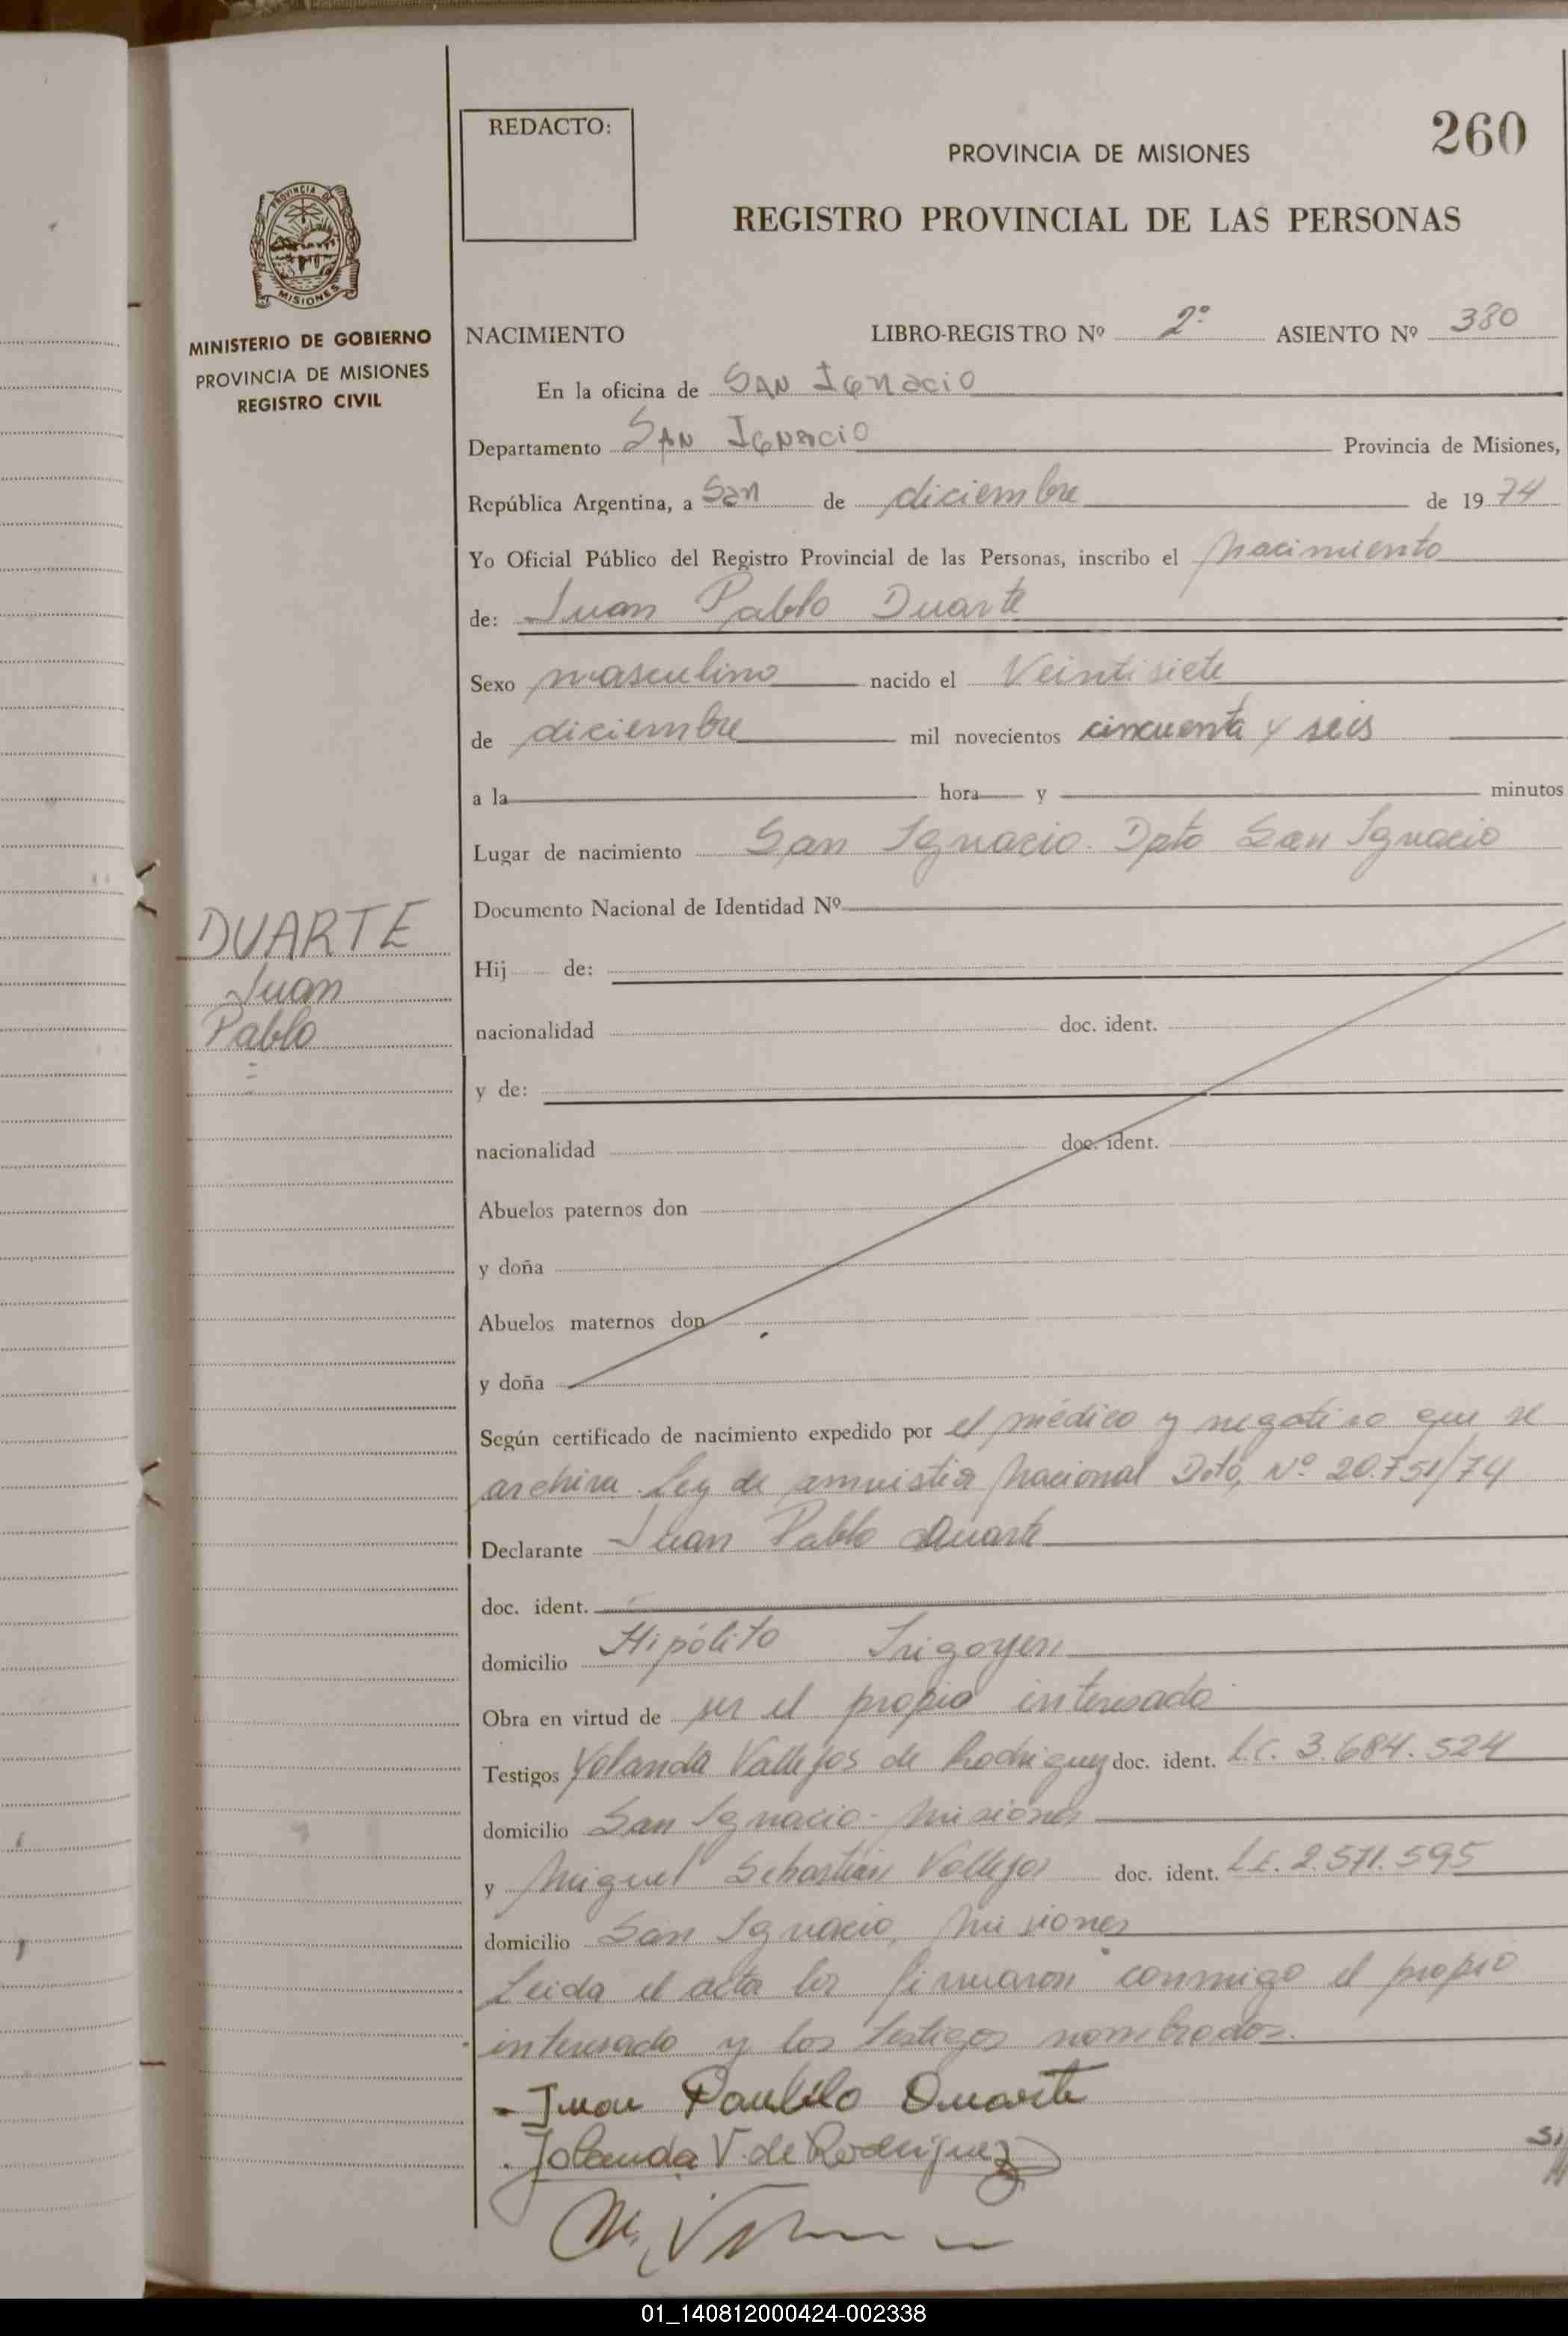 REDACTO:
260
PROVINCIA DE MISIONES
REGISTRO PROVINCIAL DE LAS PERSONAS
PROVINCIA DE
MISIONES
MINISTERIO DE GOBIERNO
PROVINCIA DE MISIONES
REGISTRO CIVIL
NACIMIENTO LIBRO-REGISTRO Nº 2º ASIENTO Nº 380
En la oficina de San Ignacio
Departamento San Ignacio Provincia de Misiones,
República Argentina, a San de diciembre de 1974
Yo Oficial Público del Registro Provincial de las Personas, inscribo el nacimiento
de: Juan Pablo Duarte
Sexo masculino nacido el Veintisiete
de diciembre mil novecientos cincuenta y seis
a la hora y minutos
Lugar de nacimiento San Ignacio. Dpto San Ignacio
Documento Nacional de Identidad Nº
DUARTE
Juan
Pablo
Hij de:
nacionalidad doc. ident.
y de:
nacionalidad doc. ident.
Abuelos paternos don
y doña
Abuelos maternos don
y doña
Según certificado de nacimiento expedido por el médico y negativo que se
archiva. Ley de amnistia Nacional Dto, Nº 20.751/74
Declarante Juan Pablo Duarte
doc. ident.
domicilio Hipólito Irigoyen
Obra en virtud de ser el propio interesado
Testigos Yolanda Vallejos de Rodriguez doc. ident. L.C. 3.684.524
domicilio San Ignacio - Misiones
y Miguel Sebastián Vallejos doc. ident. L.E. 2.571.595
domicilio San Ignacio, Misiones
Leida el acta la firmaron conmigo el propio
interesado y los testigos nombrados.
- Juan Paublo Duarte
Jolanda V. de Rodriguez
01_140812000424-002338